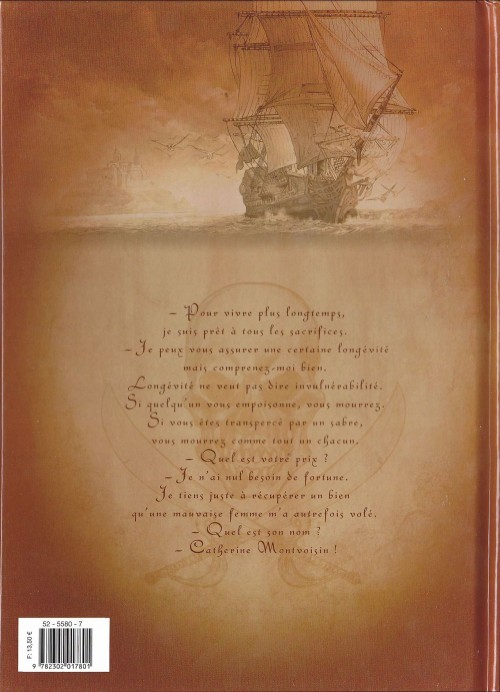 – Pour vivre plus longtemps,
je suis prêt à tous les sacrifices.
– Je peux vous assurer une certaine longévité
mais comprenez-moi bien.
Longévité ne veut pas dire invulnérabilité.
Si quelqu'un vous empoisonne, vous mourrez.
Si vous êtes transpercé par un sabre,
vous mourrez comme tout un chacun.
– Quel est votre prix ?
– Je n'ai nul besoin de fortune.
Je tiens juste à récupérer un bien
qu'une mauvaise femme m'a autrefois volé.
– Quel est son nom ?
– Catherine Montvoisin !
52 - 5580 - 7
F: 13,50 €
9 782302 017801